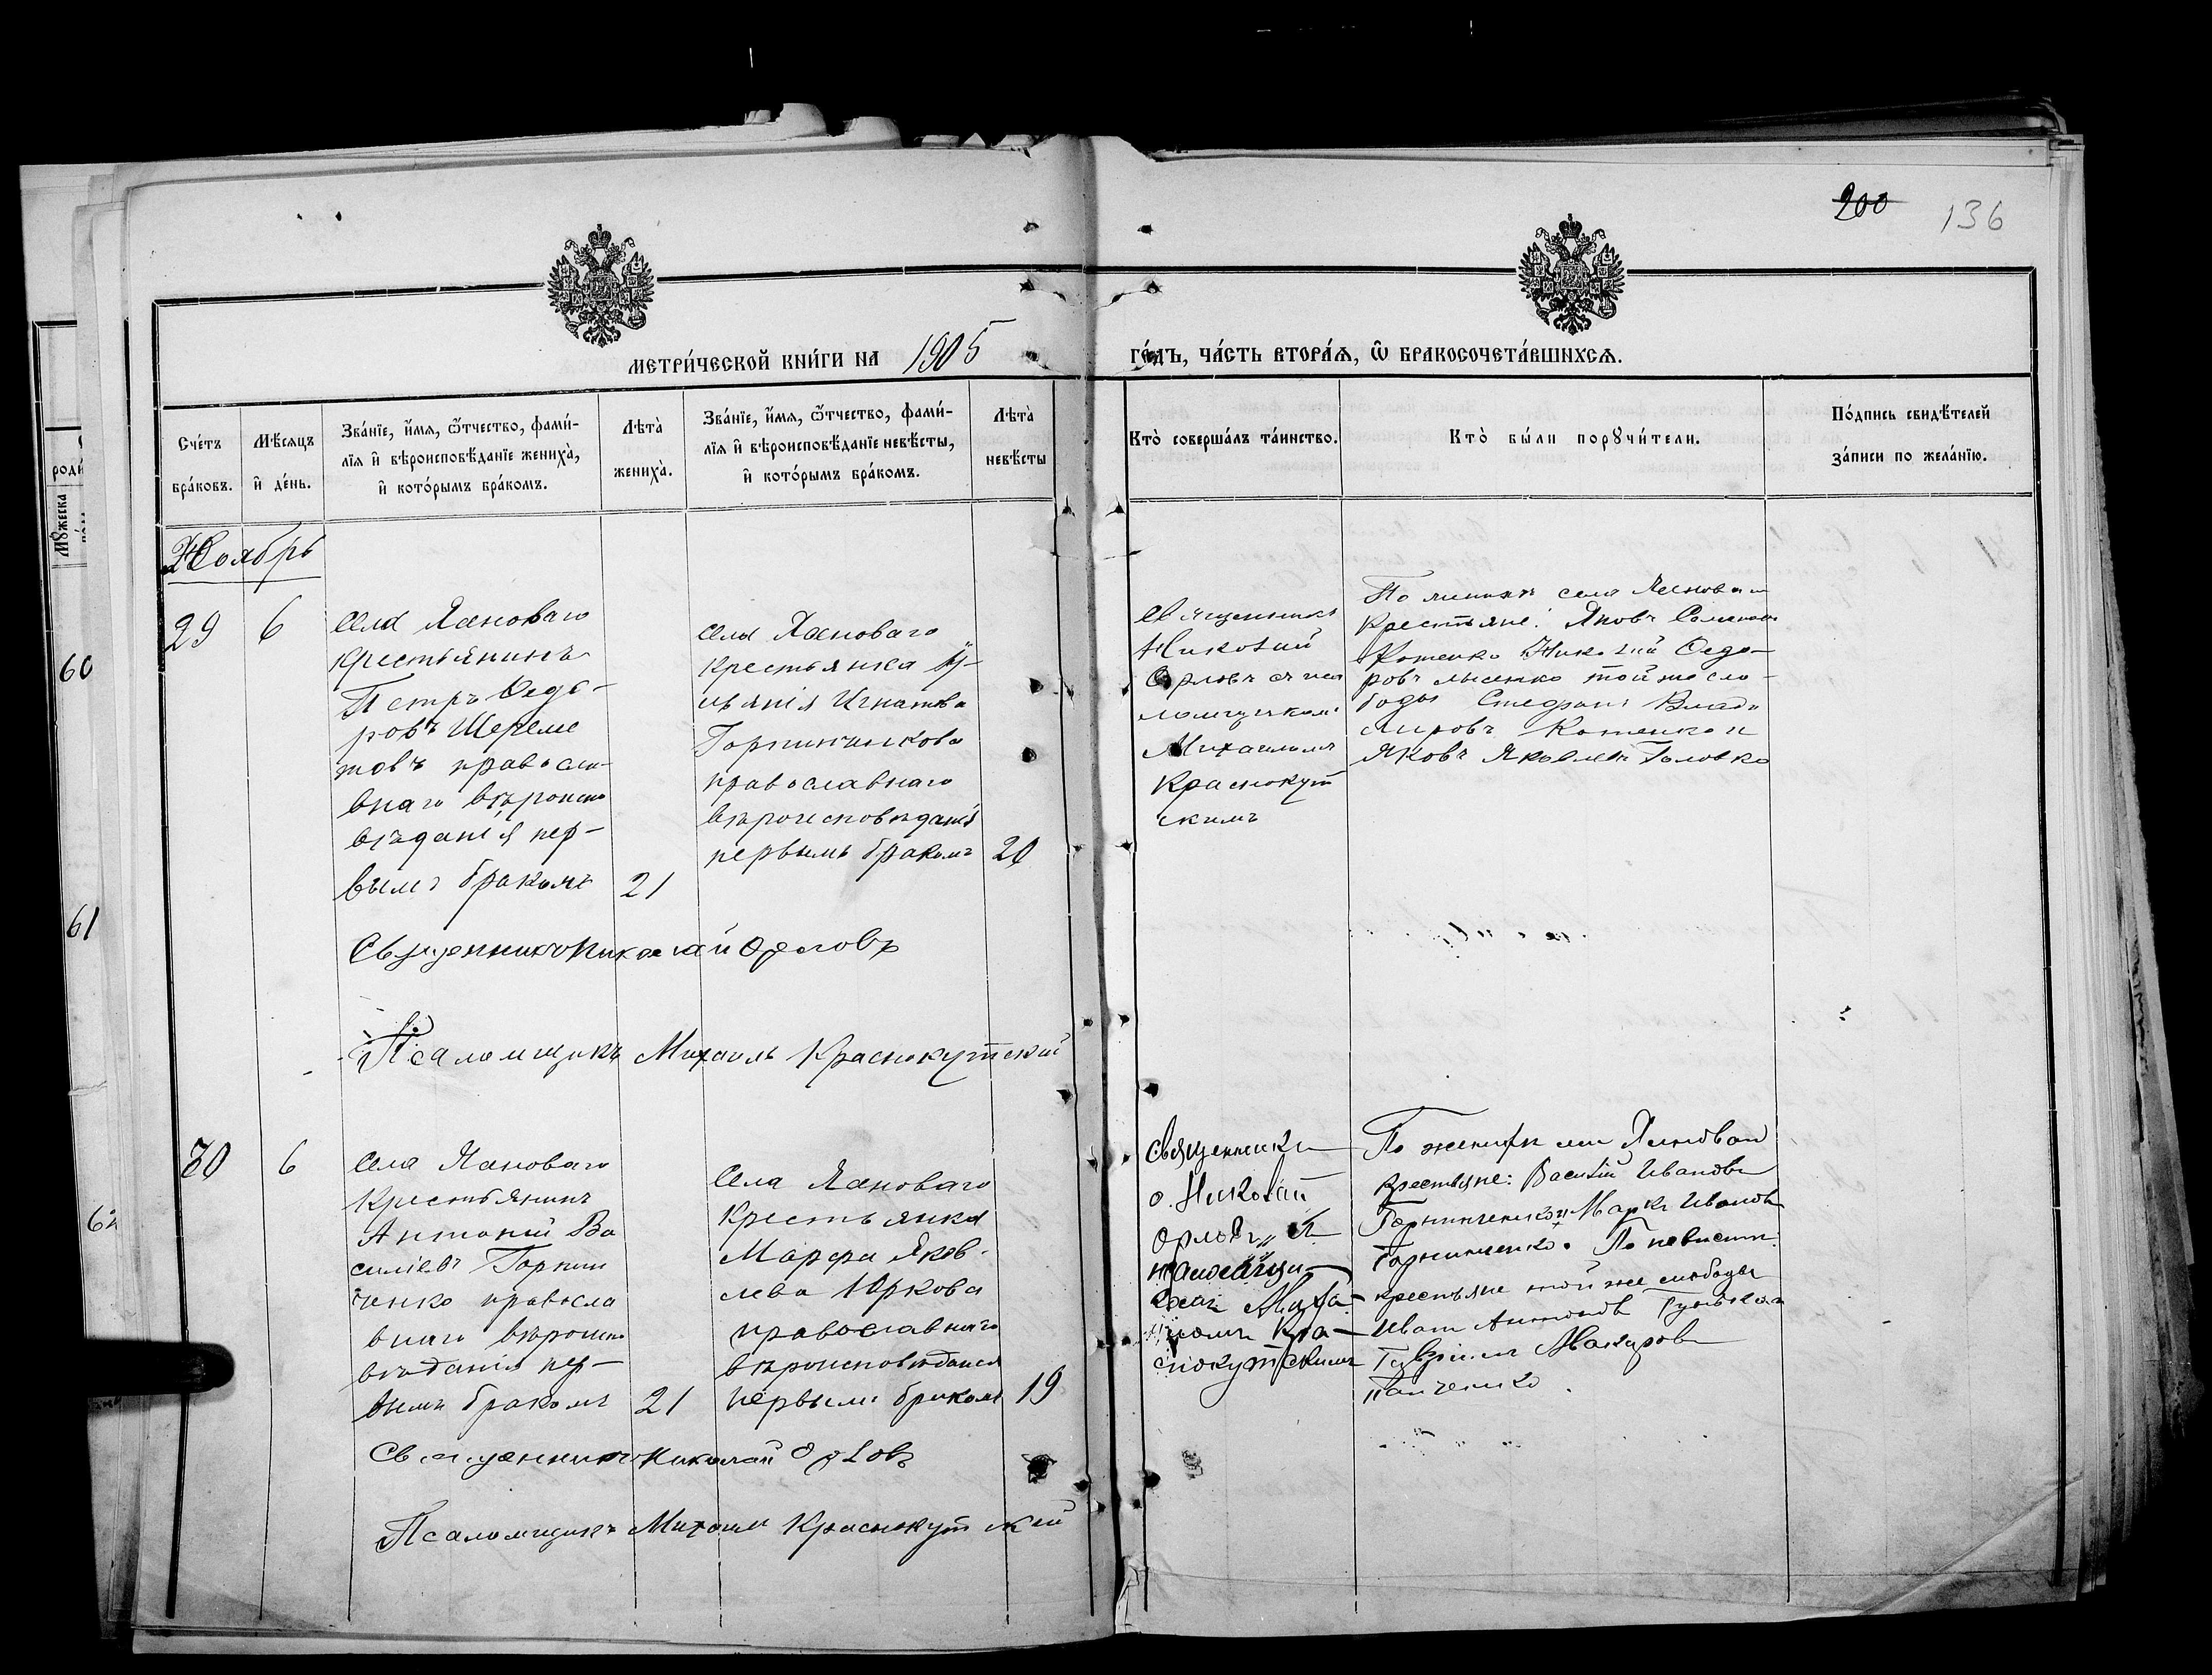 200 136
МЕТРИ́ЧЕСКОЙ КНИ́ГИ НА 1905 ГО́ДЪ, ЧА́СТЬ ВТОРА́Ѧ, Ѽ БРАКОСОЧЕТА́ВШИХСѦ.
Сче́тъ
бра́ковъ.
Мѣ́сяцъ
и҆ де́нь.
Зва́нїе, и҆́мя, ѻ҆́тчество, фами́-
лїя и҆ вѣроисповѣ́данїе жениха̀,
и҆ кото́рымъ бра́комъ.
Лѣта̀
жениха̀.
Зва́нїе, и҆́мя, ѻ҆́тчество, фами́-
лїя и҆ вѣроисповѣ́данїе невѣ́сты,
и҆ кото́рымъ бра́комъ.
Лѣта̀
невѣ́сты
Кто̀ соверша́лъ та́инство.
Кто̀ бы́ли порꙋчи́тели.
По́дпись свидѣ́телей
за́писи по жела́нїю.
Ноябрь
29
6
Села Ясеноваго
крестьянинъ
Петръ Ѳедо-
ровъ Шереме
товъ правосла-
внаго вѣроиспо
вѣданія пер-
вымъ бракомъ
21
Села Ясеноваго
крестьянка
Игнатова
православнаго
вѣроисповѣданія
первымъ бракомъ
20
Священникъ
Николай
Орловъ съ пса
ломщикомъ
Михаиломъ
Краснокут
скимъ
По жениху села Ясеноваго
крестьяне: Яковъ Семеновъ
Николай Ѳедо-
ровъ Лысенко той же сло-
боды Стефанъ Влади
мировъ Котенко и
Яковъ Яковлевъ Головко
Священникъ Николай Орловъ
Псаломщикъ Михаилъ Краснокутский
30
6
Села Ясеноваго
крестьянинъ
Антоній Ва
силіевъ Горпин
ченко правосла
внаго вѣроиспо
вѣданія пер-
вымъ бракомъ
21
Села Ясеноваго
крестьянка
Марфа Яков-
лева Юркова
православнаго
вѣроисповѣданія
первымъ бракомъ
19
Священникъ
о. Николай
Орловъ
Миха-
иломъ Кра-
снокутскимъ
По жениху села Ясеноваго
крестьяне: Василій Ивановъ
Горпинченко и Маркъ Ивановъ
Горпинченко. По невѣсти:
крестьяне той же слободы
Иванъ Антоновъ
Гавріилъ Макаровъ
Панченко.
Священникъ Николай Орловъ
Псаломщикъ Михаилъ Краснокутский
60
61
роди
Мꙋжеска